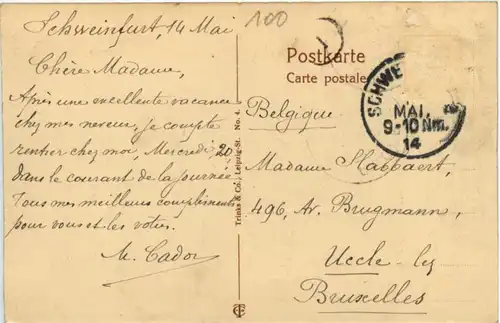 Schweinfurt, 14 Mai
Chère Madame,
Après une excellente vacance
chez mes neveux, je compte
rentrer chez moi, Mercredi 20
dans le courant de la journée
Tous mes meilleurs compliments
pour vous et les votres.
M. Cador
Trinks & Co., Leipzig-St. No. 4.
100
Postkarte
Carte postale
SCHWE
MAI.
9-10 Nm.
14
Belgique
Madame
496, Av. Brugmann,
Uccle-les
Bruxelles